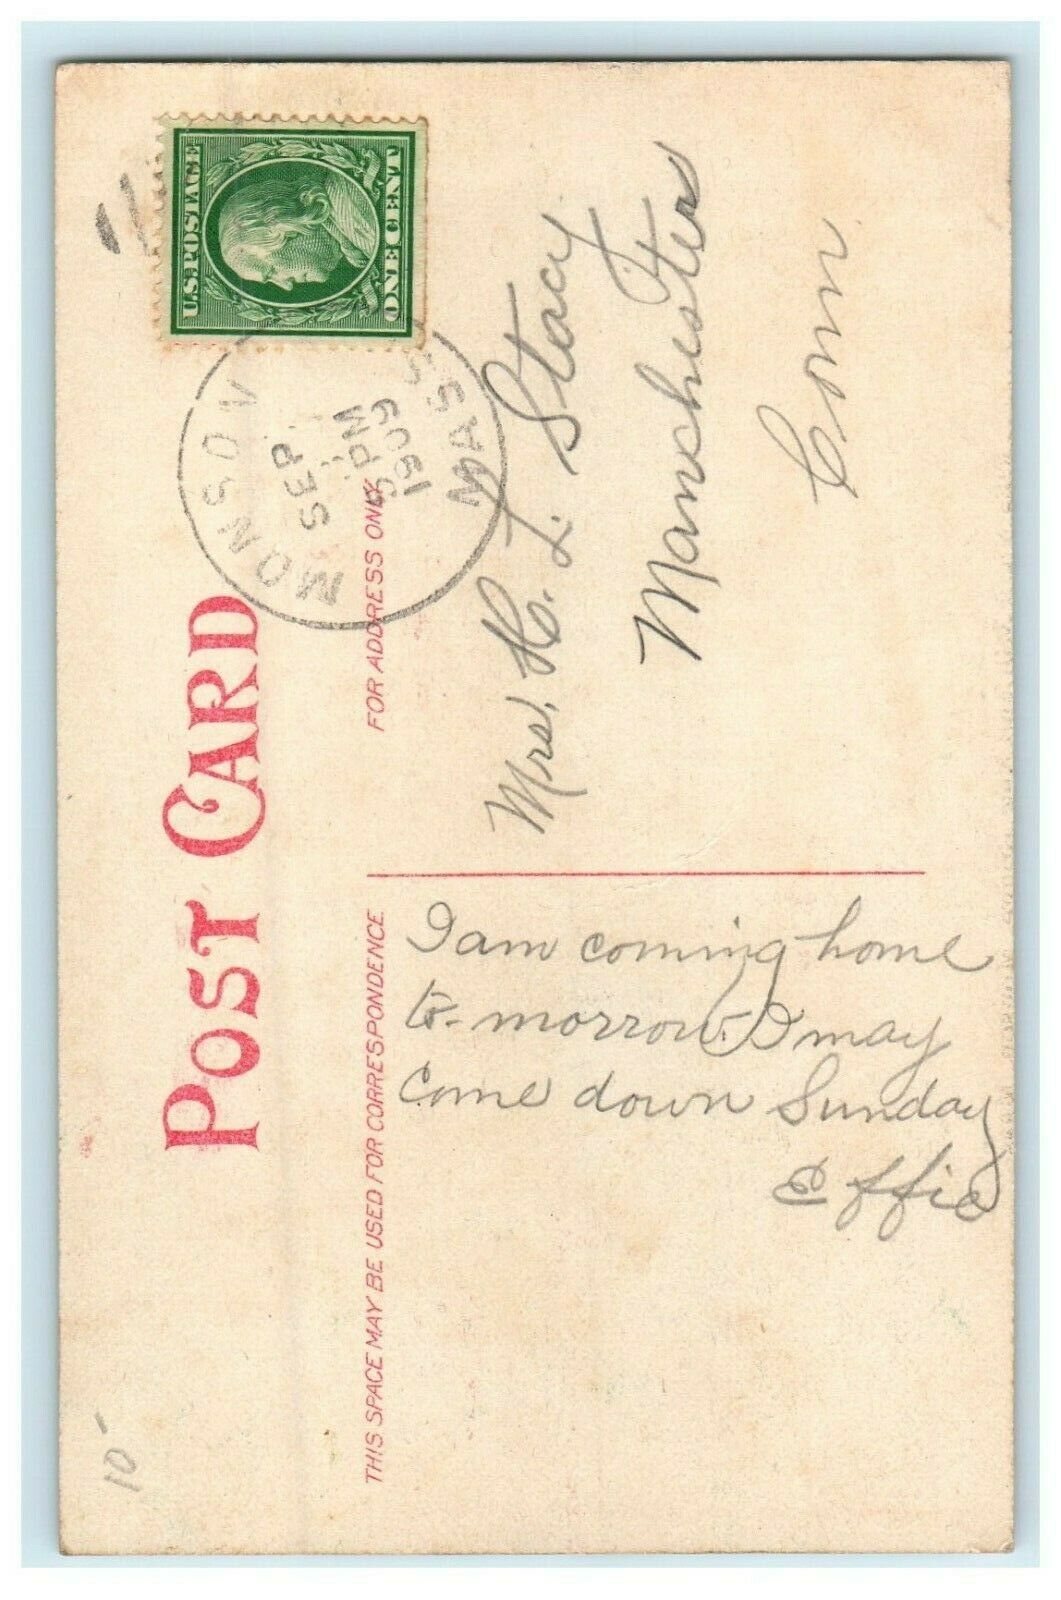 POST CARD
U.S.POSTAGE
ONE CENT
MONSON
SEP
5 PM
1909
MASS
FOR ADDRESS ONLY.
Mrs. H. L. Stacy
Manchester
Conn
THIS SPACE MAY BE USED FOR CORRESPONDENCE.
I am coming home
to-morrow. I may
come down Sunday
Effie
10